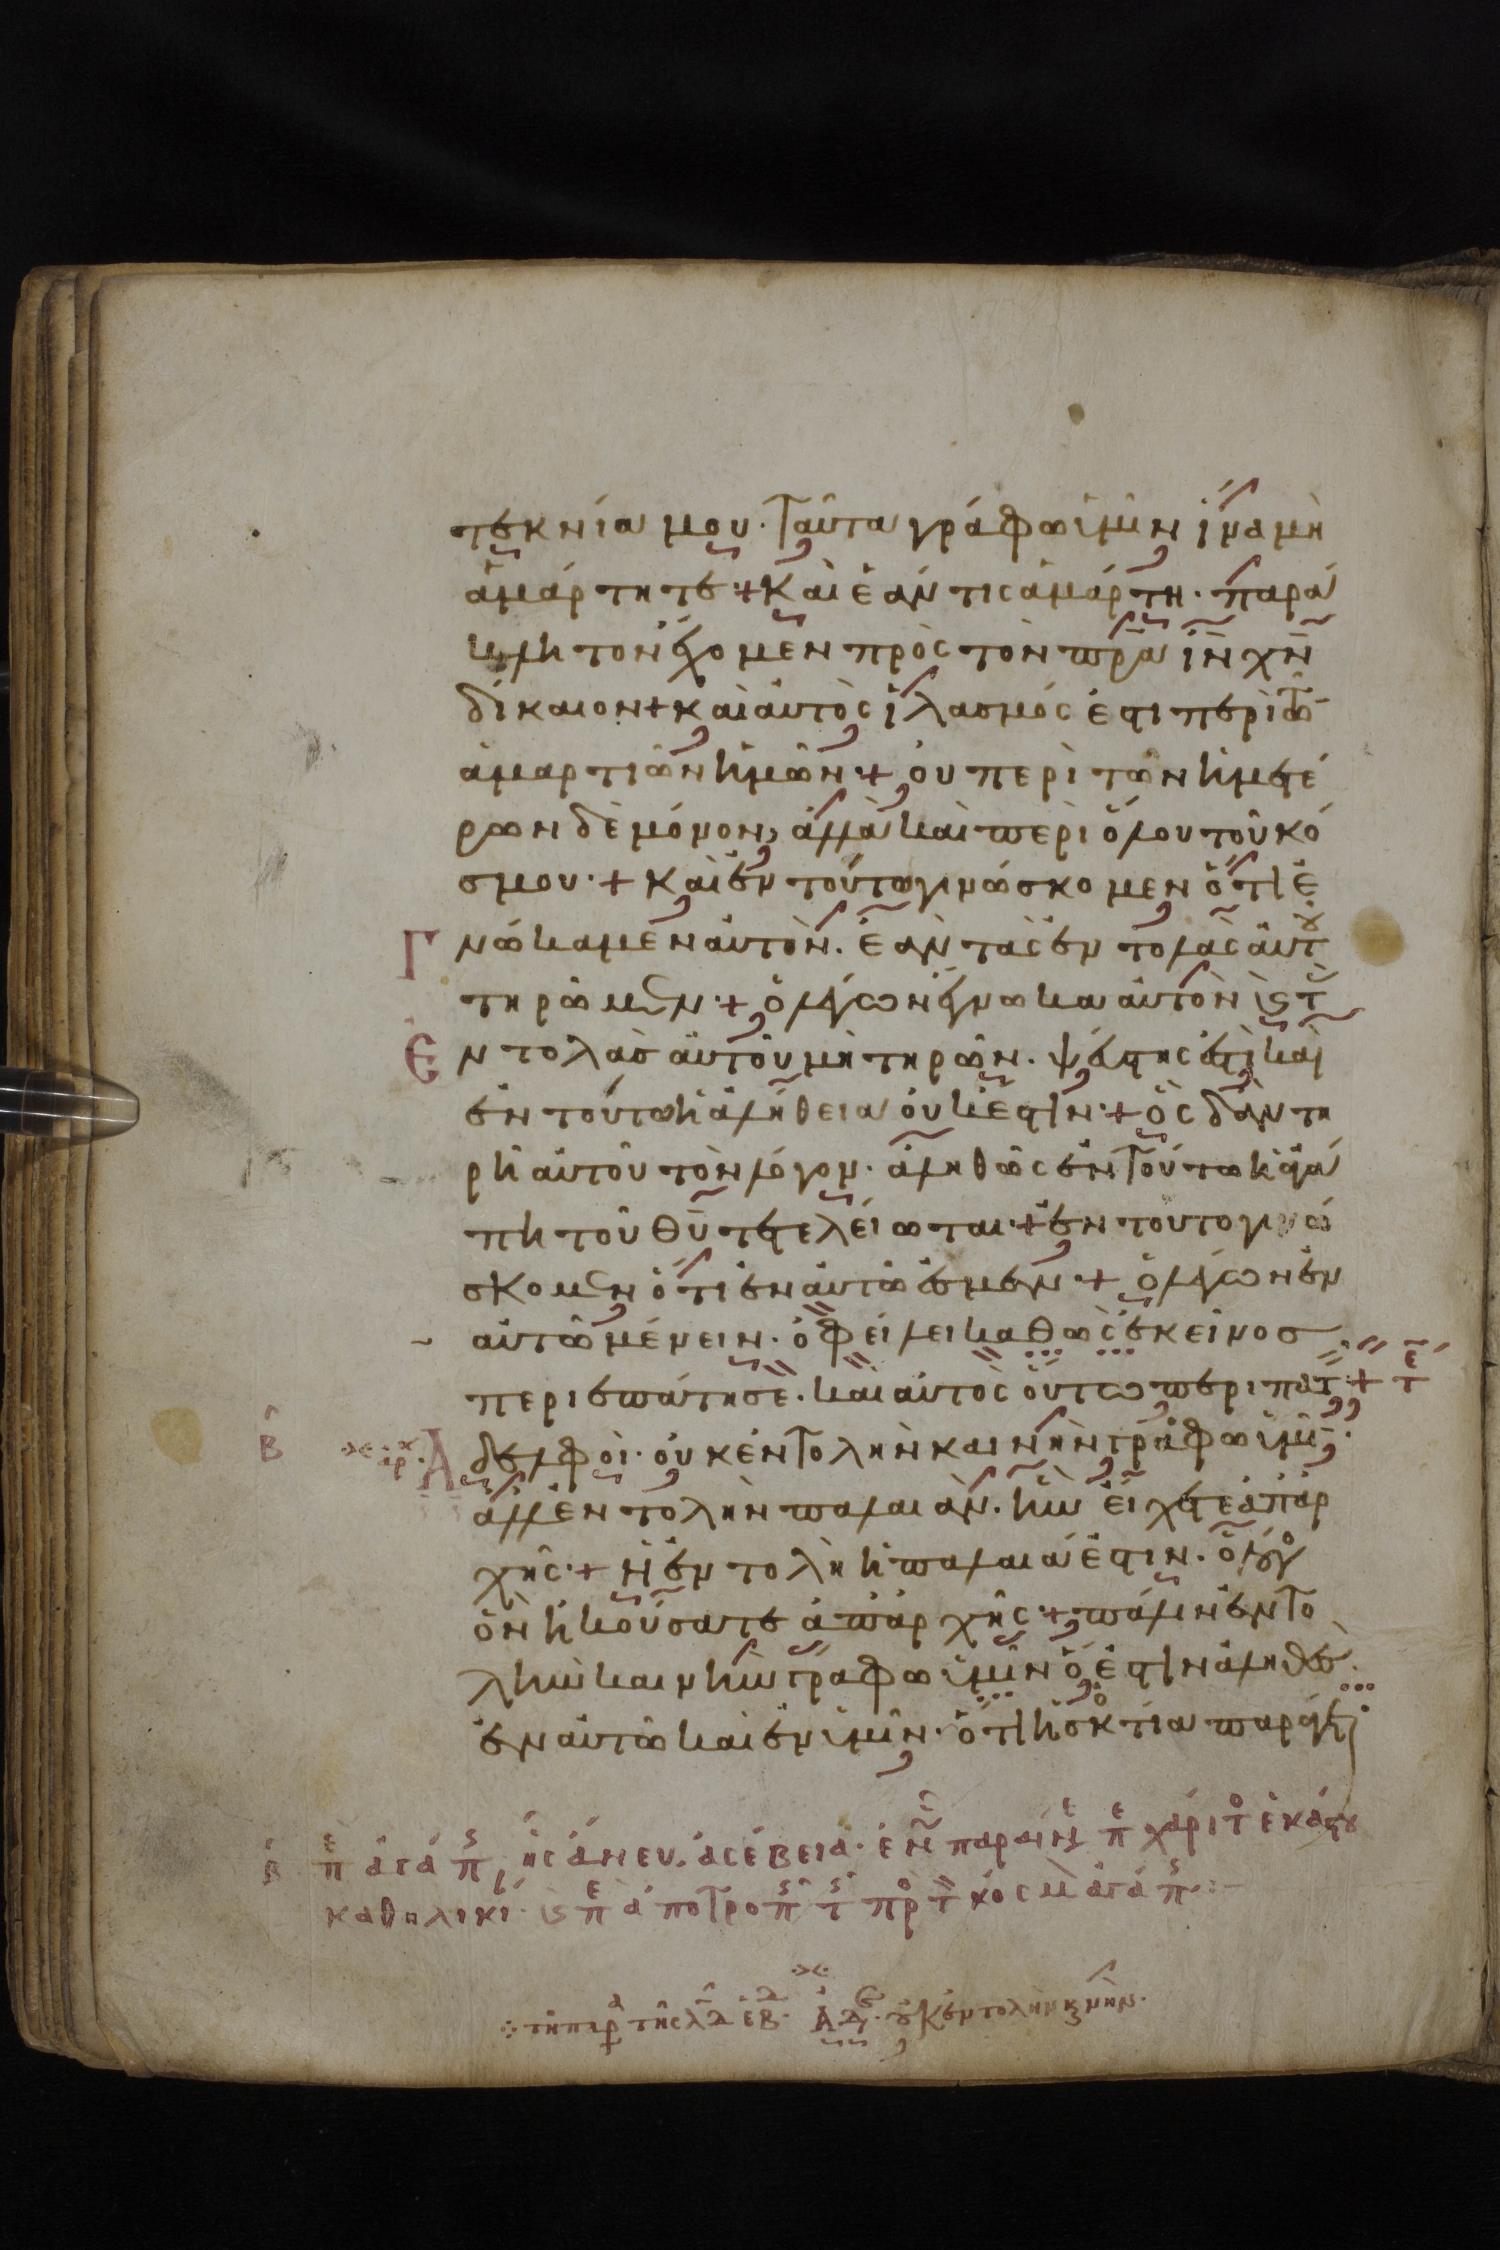 τεκνία μου· ταῦτα γράφω ὑμῖν ἵνα μὴ
ἁμάρτητε· + Καὶ ἐάν τις ἁμάρτη· παρά
κλητον ἔχομεν πρὸς τὸν πρ̅α ι̅ν̅ χ̅ν̅
δίκαιον + καὶ αὐτὸς ἱλασμός ἐστι περὶ τῶ
ἁμαρτιῶν ἡμῶν· + οὐ περὶ τῶν ἡμετέ
ρων δὲ μόνον, ἀλλὰ καὶ περὶ ὅλου τοῦ κό
σμου· + Καὶ ἐν τούτω γινώσκομεν ὅτι ἐ
Γ νώκαμεν αὐτὸν· ἐὰν τὰς ἐντολὰς αὐτ
τηρῶμεν· + ὁ λέγων ἔγνωκα αὐτὸν ϗ τ
Ε ντολὰσ αὐτοῦ μὴ τηρῶν· ψεύστης ἐστὶ καὶ
ἐν τούτω ἡ ἀλήθεια οὐκ ἔστιν· + ὃς δἂν τη
ρῆ αὐτοῦ τὸν λόγον· ἀληθῶς ἐν τούτω ἡ ἀγά
πη τοῦ θ̅υ̅ τετελείωται· + ἐν τουτο γινώ
σκομεν ὅτι ἐν αὐτῶ ἐσμεν· + ὁ λέγων ἐν
αὐτῶ μένειν· ὀφείλει καθὼς ἐκεῖνοσ
περιεπάτησε· καὶ αὐτὸς οὕτω περιπατ + τ
Β αρχ Α δελφοὶ· οὐκ ἐντολὴν καινὴν γράφω ὑμῖ·
ἀλλ ἐντολὴν παλαιὰν· ἣν εἴχετε ἀπ ἀρ
χῆς· + ἡ ἐντολὴ ἡ παλαιά ἐστιν· ὁ λόγο
ὃν ἠκούσατε ἀπ ἀρχῆς· + πάλιν ἐντο
λὴν καινὴν γράφω ὑμῖν ὅ ἐστιν ἀληθὲσ·
ἐν αὐτῶ καὶ ἐν ὑμῖν· ὅτι ἡ σκοτία παράγετ
β π ἀγάπ, ἧς ἄνευ, ἀσέβεια· ἐν παραιν π χάριτ ἑκάστου
καθηλικί· ϗ π ἀποτροπ τ πρ τ κόσμ ἀγάπ:
τῆ παρ τῆς λδ ἑβ· Ἀδ· οὐκ ἐντολὴν κ